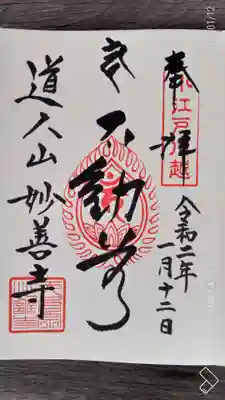 奉拝
小江戸川越
令和二年
一月十二日
不動尊
道人山 妙善寺